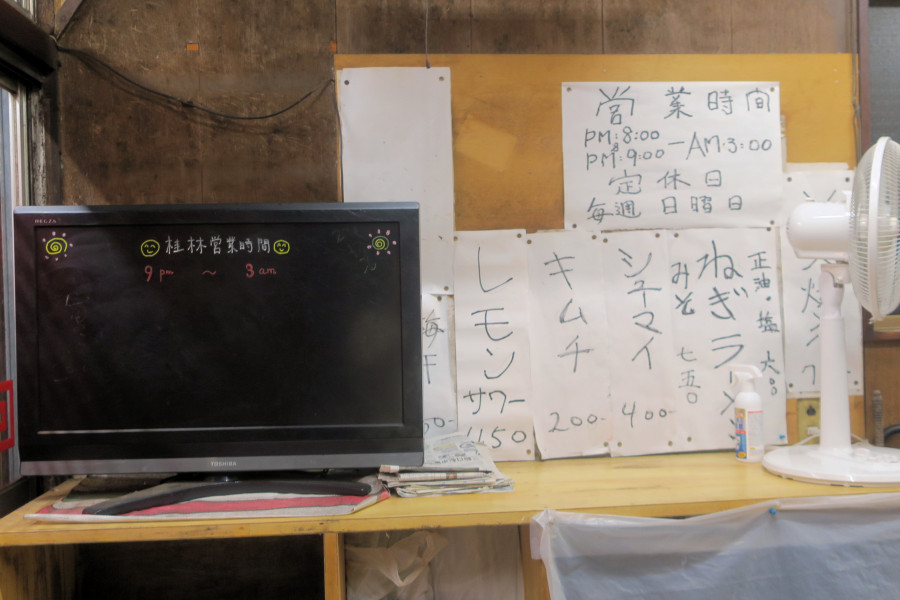 REGZA
桂林営業時間
9pm ～ 3am
TOSHIBA
営業時間
PM:8:00
PM:9:00-AM:3:00
定休日
毎週 日曜日
レモンサワー
450
キムチ
200-
シューマイ
400-
ねぎラーメン
正油・塩
みそ
七五〇